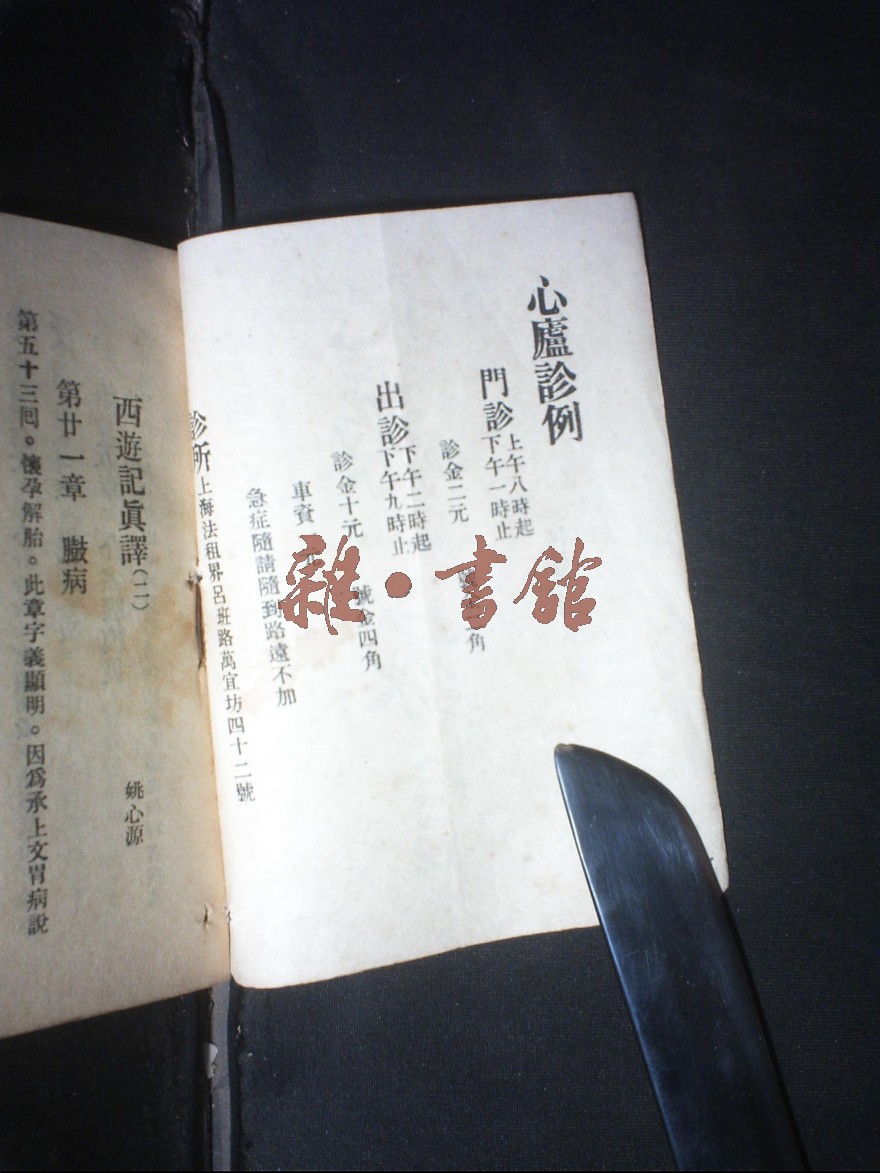 心廬診例
門診
上午八時起
下午一時止
診金二元
角
出診
下午二時起
下午九時止
診金十元 號金四角
車資
急症隨請隨到路遠不加
診所 上海法租界呂班路萬宜坊四十二號
西遊記眞譯(二)
姚心源
第廿一章 臟病
第五十三囘。懷孕解胎。此章字義顯明。因爲承上文胃病說
雜·書館